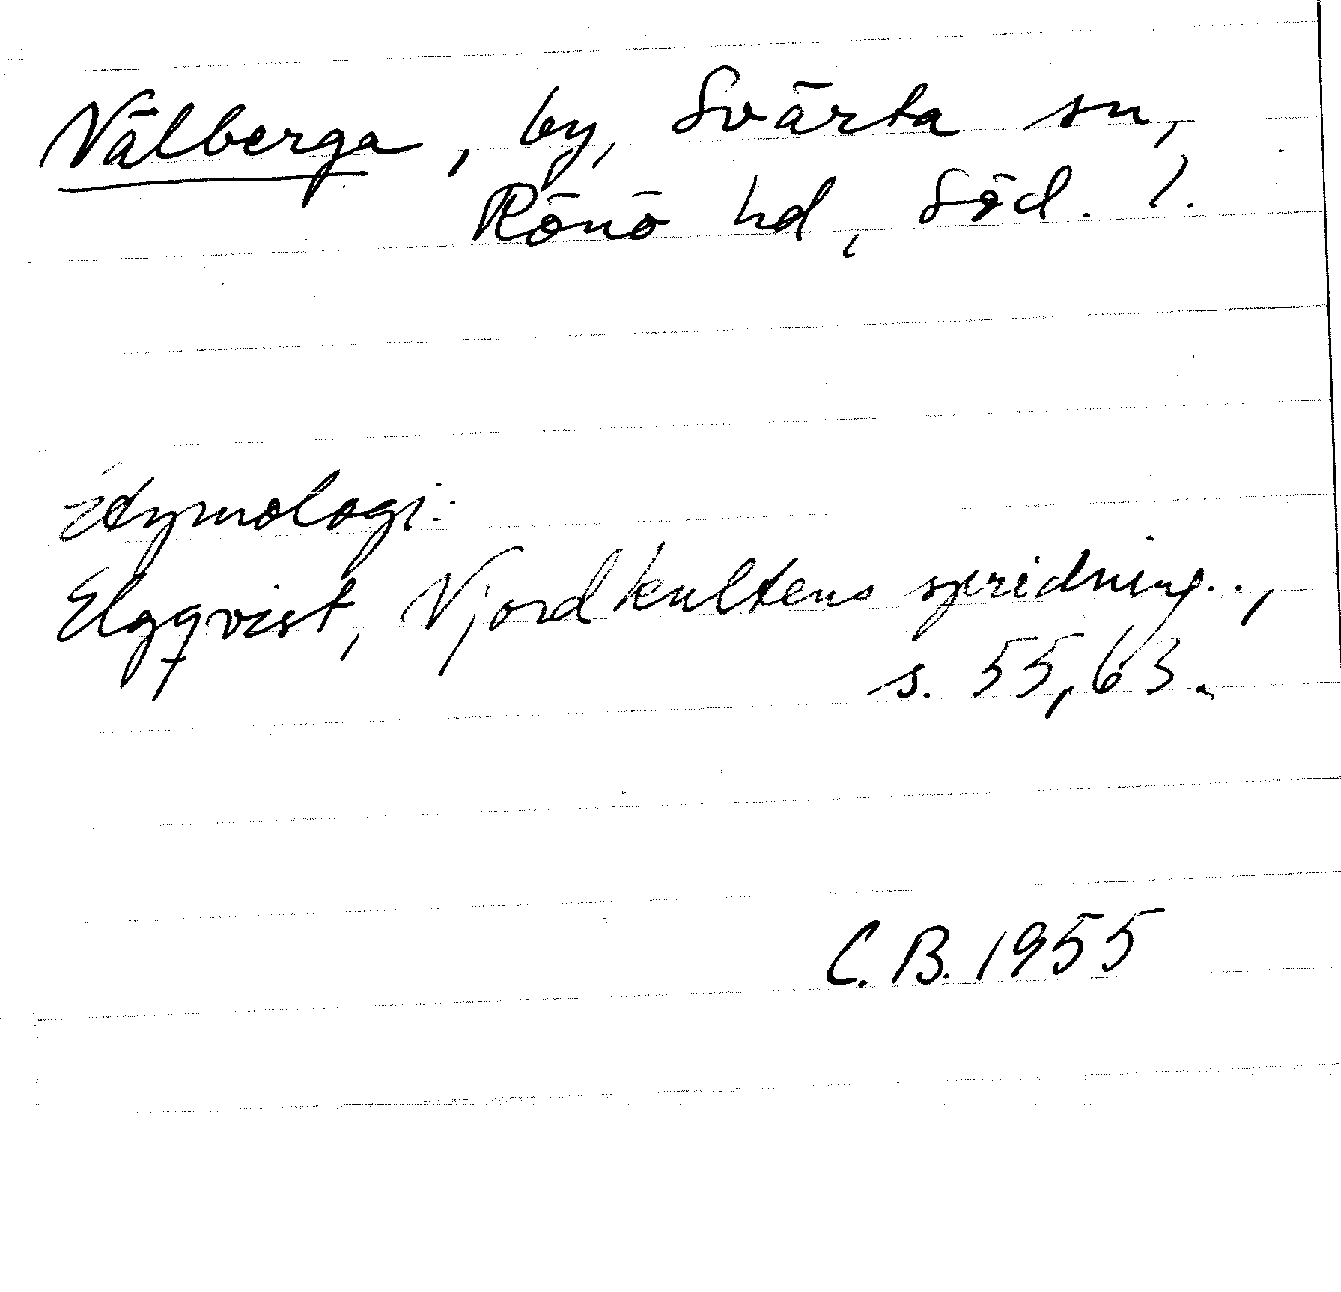 Nälberga, by, Svärta sn,
Rönö hd, Söd. l.
Etymologi:
Elgqvist, Njordkultens spridning..,
s. 55, 63.
C. B. 1955